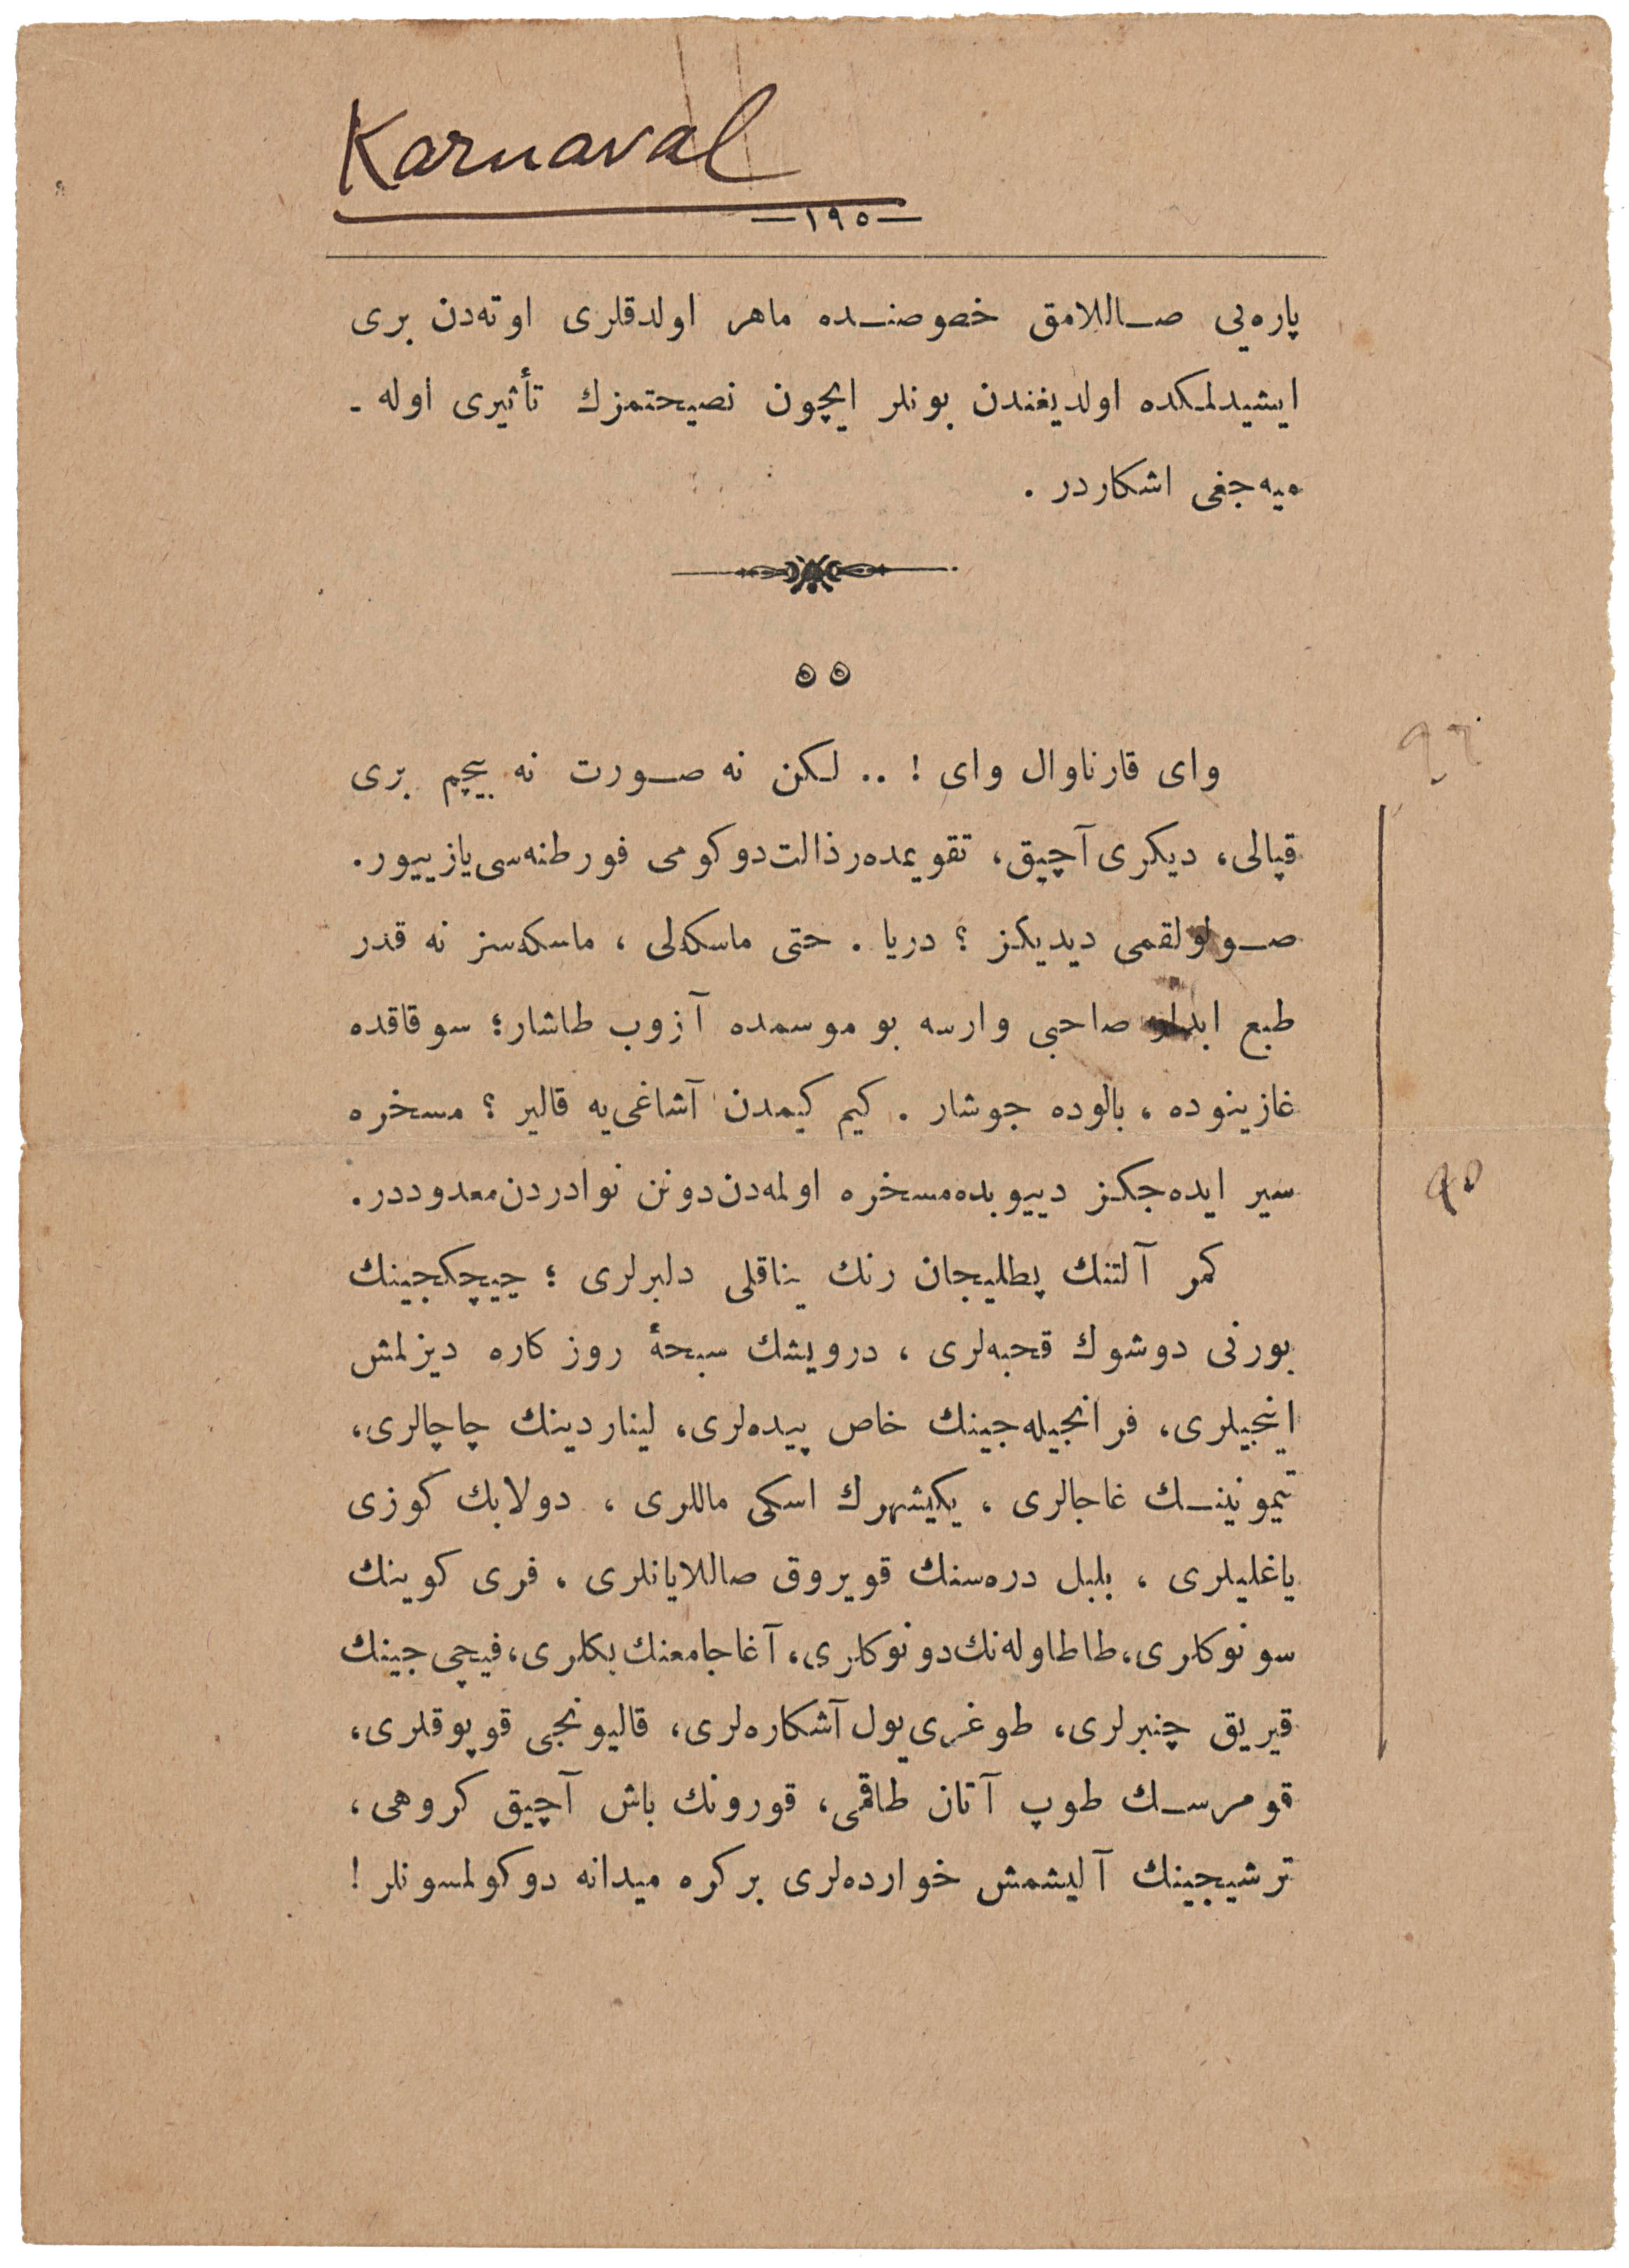 Karnaval
—١٩٥—
پاره‌یی صاللامق خصوصنده ماهر اولدقلری اوته‌دن بری
ایشیدلمکده اولدیغندن بونلر ایچون نصیحتمزك تأثیری اوله -
میه‌جغی اشکاردر .
٥٥
وای قارناوال وای ! .. لکن نه صورت نه بیچم بری
قپالی، دیکری آچیق، تقویمده رذالت دوکومی فورطنه‌سی یازییور.
صولولقمی دیدیکز ؟ دریا . حتی ماسکه‌لی ، ماسکه‌سز نه قدر
طبع صاحبی وارسه بو موسمده آزوب طاشار؛ سوقاقده
غازینوده ، بالوده جوشار . کیم کیمدن آشاغی‌یه قالیر ؟ مسخره
سیر ایده‌جکز دییوبده مسخره اولمه‌دن دونن نوادردن معدوددر.
کمر آلتنك پطلیجان رنك یناقلی دلبرلری ؛ چیچکجینك
بورنی دوشوك قحبه‌لری ، درویشك سبحهٔ روزکاره دیزلمش
اینجیلری، فرانجیله‌جینك خاص پیده‌لری، لیناردینك چاچالری،
تیمونینك غاجالری ، یکیشهرك اسکی ماللری ، دولابك کوزی
یاغلیلری ، بلبل دره‌سنك قویروق صاللایانلری ، فری کوینك
سونوکلری، طاطاوله‌نك دونوکلری، آغاجامعنك بکلری، فیچی‌جینك
قیریق چنبرلری، طوغری یول آشکاره‌لری، قالیونجی قوپوقلری،
قومرسك طوپ آتان طاقمی، قورونك باش آچیق کروهی،
ترشیجینك آلیشمش خوارده‌لری برکره میدانه دوکولسونلر !
٩٥